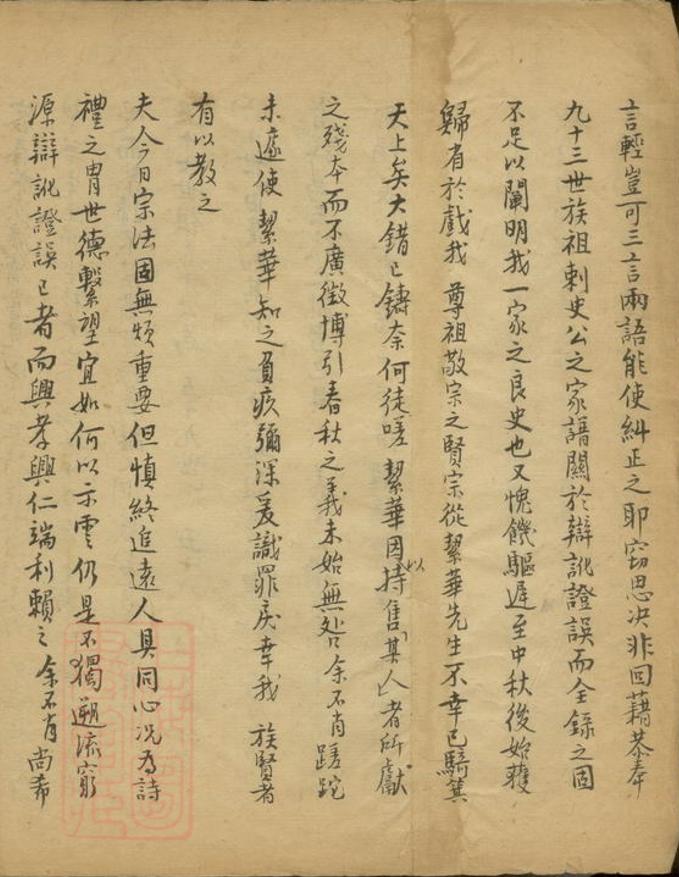 言輕豈可三言兩語能使糾正之耶竊思决非回藉恭奉
九十三世族祖刺史公之家譜關於辯訛證誤而全錄之固
不足以闡明我一家之良史也又愧饑驅遲至中秋後始獲
歸省於戲我 尊祖敬宗之賢宗從絜華先生不幸已騎箕
天上矣大錯已鑄奈何徒嗟 絜華因以持售其人者所獻
之殘本而不廣徵博引春秋之義未始無咎余不肖蹉跎
未遽使 絜華知之負疚彌深爰識罪戾幸我 族賢者
有以教之
夫今日宗法固無煩重要但慎終追遠人具同心況為詩
禮之胄世德繫望宜如何以示雲仍是不獨遡流窮
源辯訛證誤已者而興孝興仁端利賴之 余不肖尚希